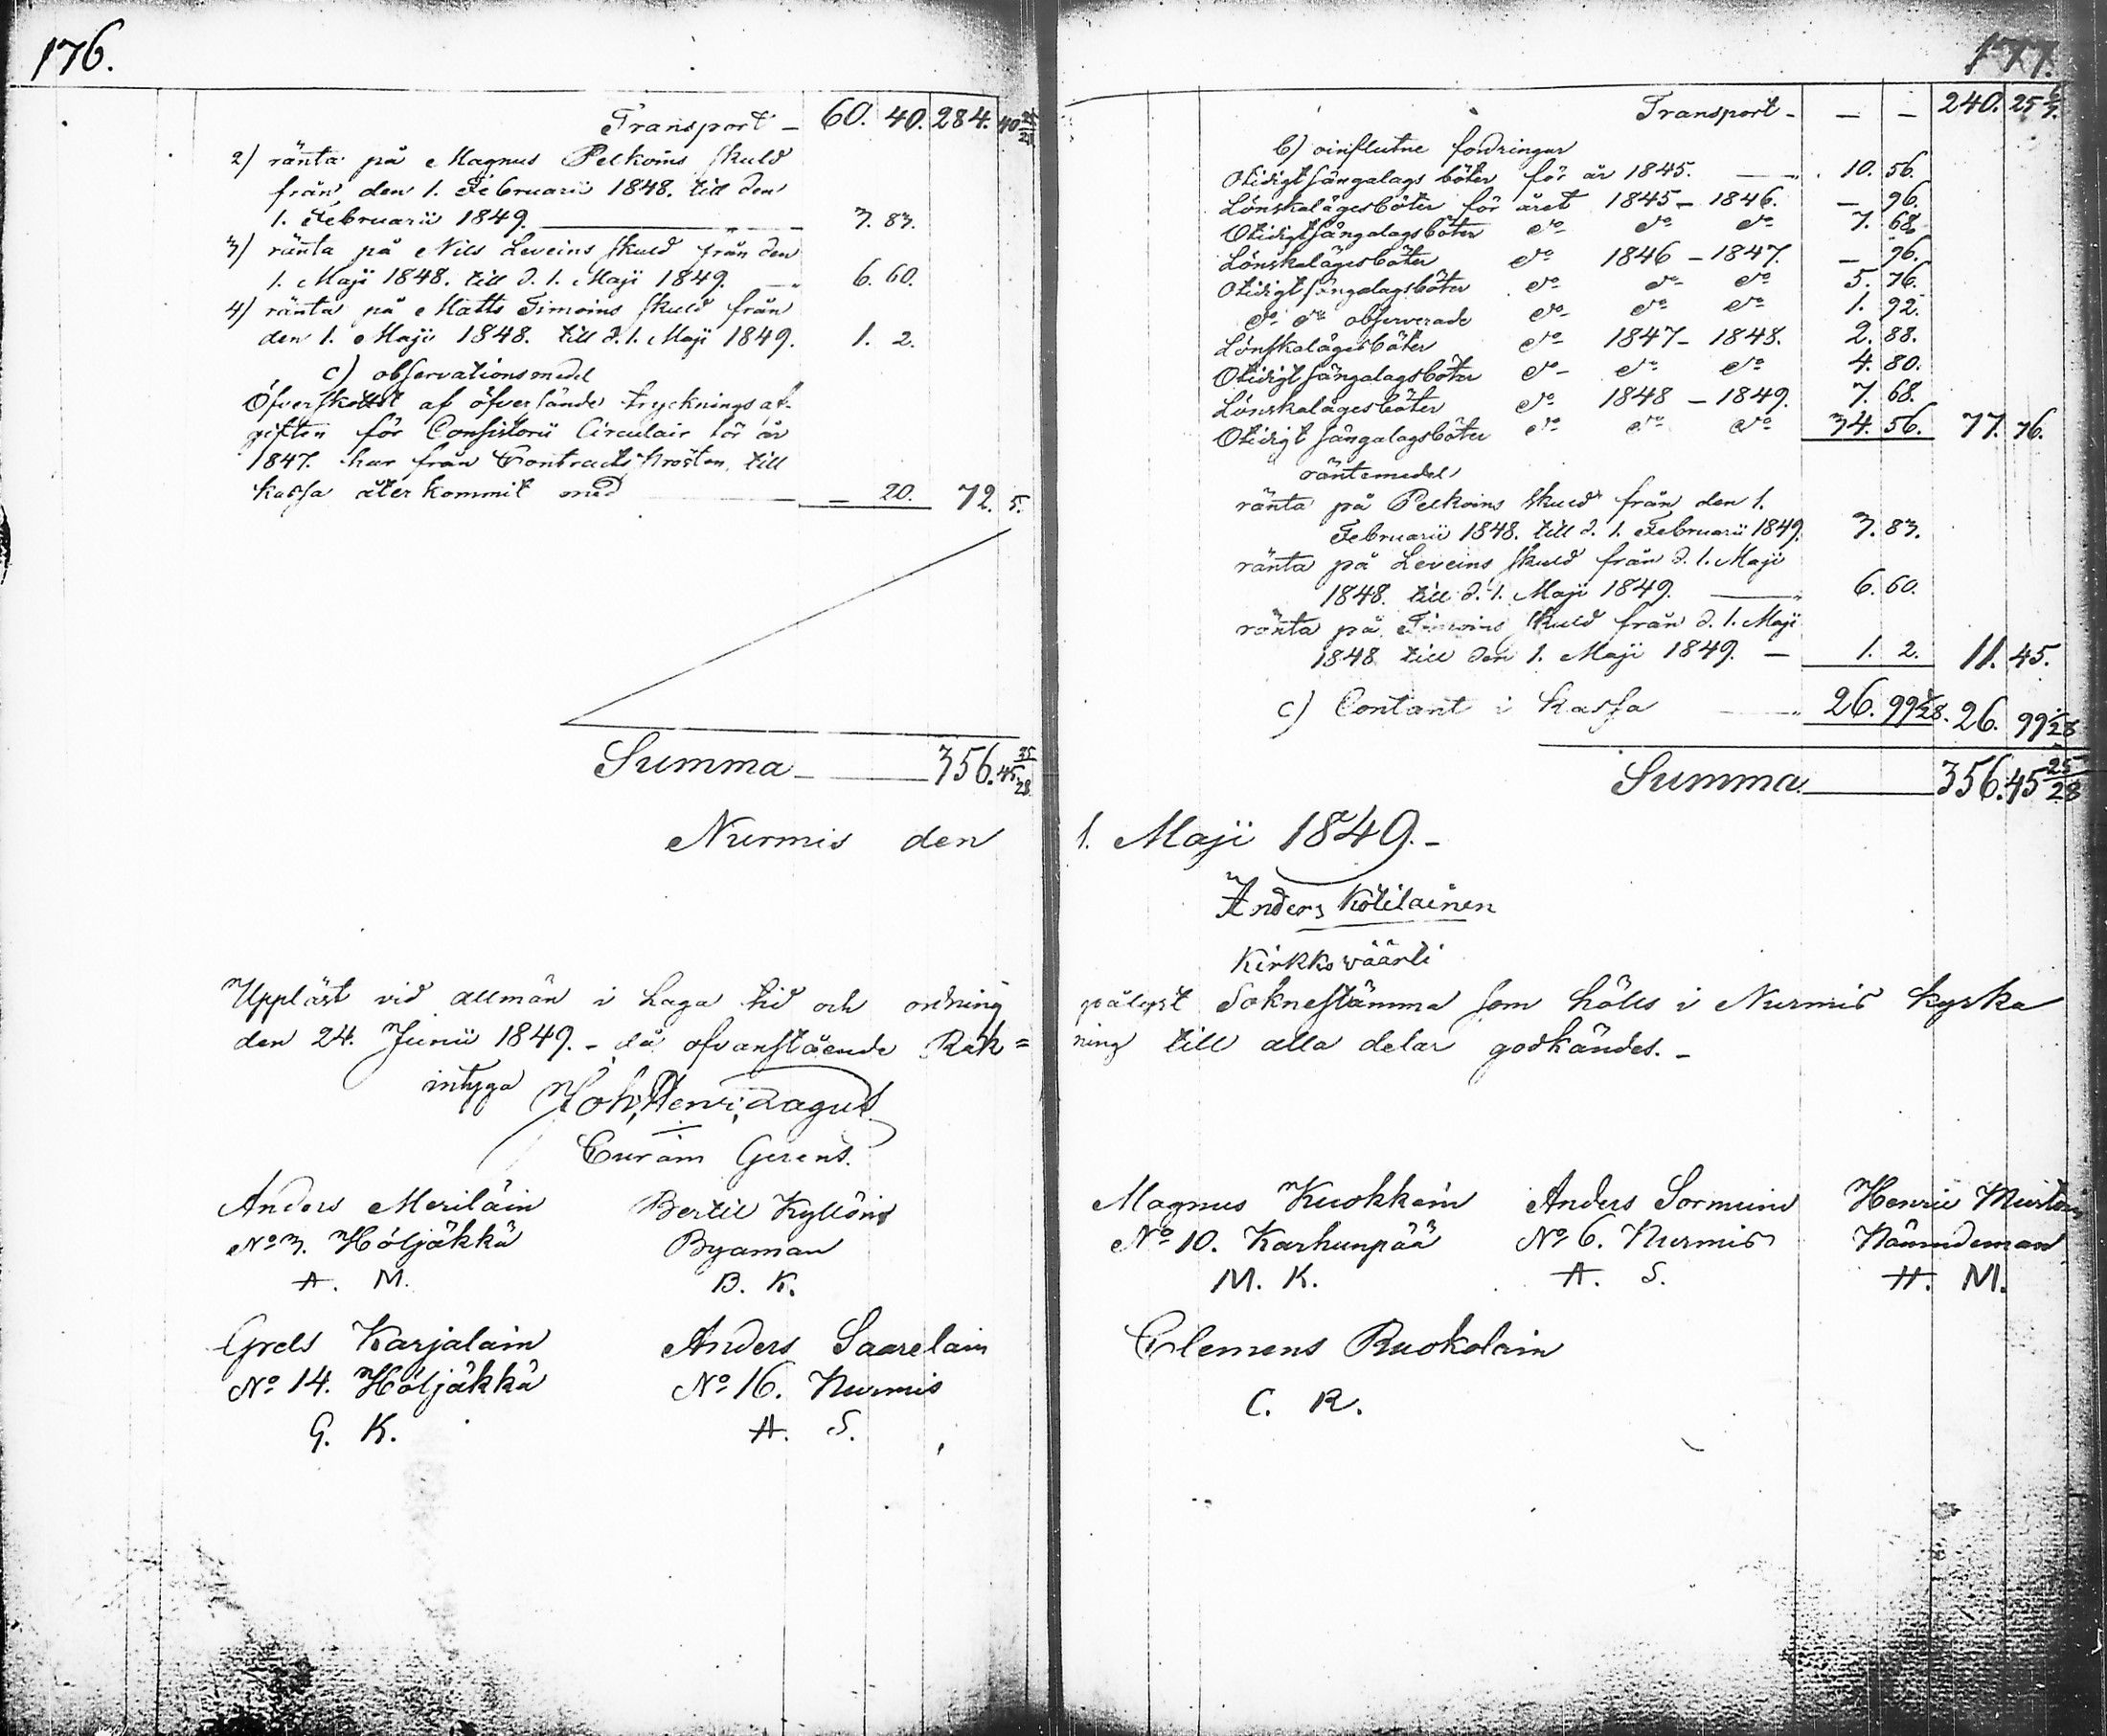 176.
Transport — 60. 40. 284. 40 25/28
2) ränta på Magnus Pelkoins skuld
från den 1. Februarii 1848. till den
1. Februarii 1849. — 3. 83.
3) ränta på Nils Leveins skuld från den
1. Maji 1848. till d. 1. Maji 1849. — 6. 60.
4) ränta på Matts Timoins skuld från
den 1. Maji 1848. till d. 1. Maji 1849. 1. 2.
c) observationsmedel
Öfverskottet af öfversände trycknings af-
giften för Consistorii Circulair för år
1847. har från Contracts Prosten till
kassa återkommit med — — 20. 72. 5.
Summa — 356. 45. 25/28
Nurmis den
Uppläst vid allmän i Laga tid och ordning
den 24. Junii 1849. – då ofvanstående Räk=
intyga Joh. Henr. Lagus
Curam Gerens.
Anders Meriläin Bertil Kyllöin
No 3. Höljäkkä Byaman
A. M. B. K.
Grels Karjalain Anders Saarelain
No 14. Höljäkkä No 16. Nurmis
G. K. A. S.
177.
Transport – — — 240. 25 6/7.
b) oinflutne fordringar
Otidigt sängalags böter för år 1845. — 10. 56.
Lönskalägesböter för året 1845 – 1846. — 96.
Otidigt sängalagsböter do do do 7. 68.
Lönskalägesböter do 1846 – 1847. — 96.
Otidigt sängalagsböter do do do 5. 76.
do do observerade do do do 1. 92.
Lönskalägesböter do 1847 – 1848. 2. 88.
Otidigt sängalagsböter do do do 4. 80.
Lönskalägesböter do 1848 – 1849. 7. 68.
Otidigt sängalagsböter do do do 34. 56. 77. 76.
räntemedel
ränta på Pelkoins skuld från den 1.
Februarii 1848. till d. 1. Februarii 1849. 3. 83.
ränta på Leveins skuld från d. 1. Maji
1848. till d. 1. Maji 1849. — 6. 60.
ränta på Timoins skuld från d. 1. Maji
1848 till den 1. Maji 1849. — 1. 2. 11. 45.
c) Contant i kassa — 26. 99 1/28. 26. 99 1/28
Summa — 356. 45 25/28
1. Maji 1849. –
Anders Kötiläinen
Kirkko väärti
pålyst Soknestämma som hölls i Nurmis kyrka
ning till alla delar godkändes. –
Magnus Kuokkain Anders Sormuin Henric Murtoin
No 10. Karhunpää No 6. Nurmis Nämndeman
M. K. A. S. H. M.
Clemens Ruokolain
C. R.